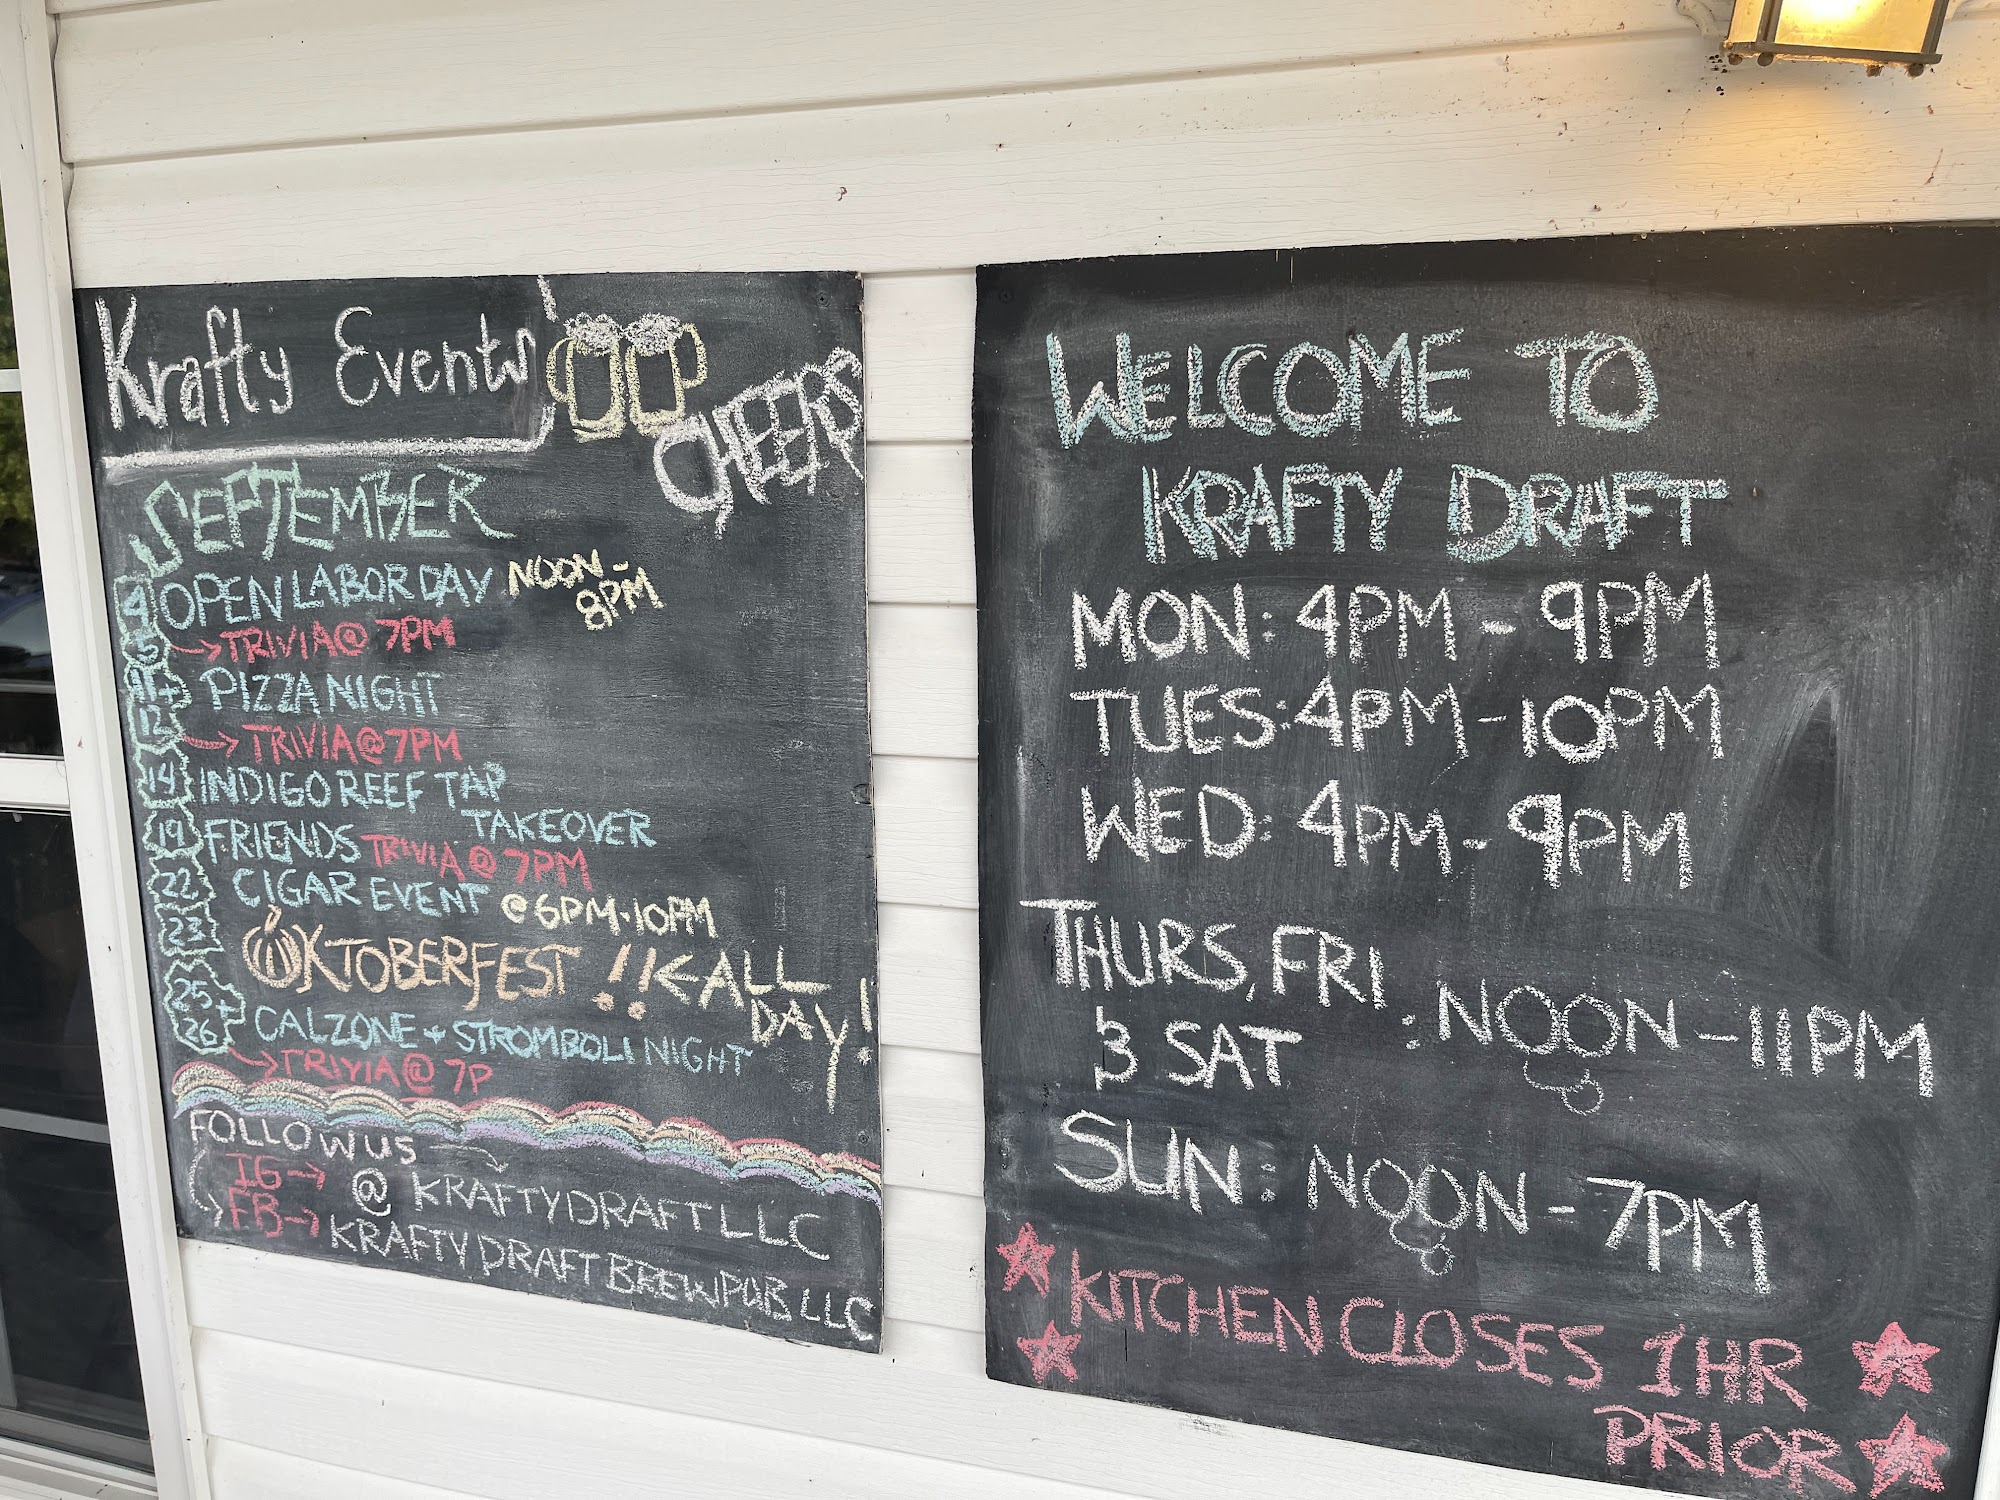 Krafty Events
CHEERS
SEPTEMBER
4 OPEN LABOR DAY NOON-
8PM
5 → TRIVIA @ 7PM
11+ PIZZA NIGHT
12 → TRIVIA @ 7PM
14 INDIGO REEF TAP
TAKEOVER
19 FRIENDS TRIVIA @ 7PM
22 CIGAR EVENT @ 6PM-10PM
23 OKTOBERFEST !! ← ALL
DAY!
25+ CALZONE + STROMBOLI NIGHT
26 → TRIVIA @ 7P
FOLLOW US
IG → @ KRAFTYDRAFTLLC
FB → KRAFTY DRAFT BREWPUB LLC
WELCOME TO
KRAFTY DRAFT
MON: 4PM - 9PM
TUES: 4PM - 10PM
WED: 4PM - 9PM
THURS, FRI
& SAT : NOON - 11PM
SUN: NOON - 7PM
KITCHEN CLOSES 1 HR
PRIOR